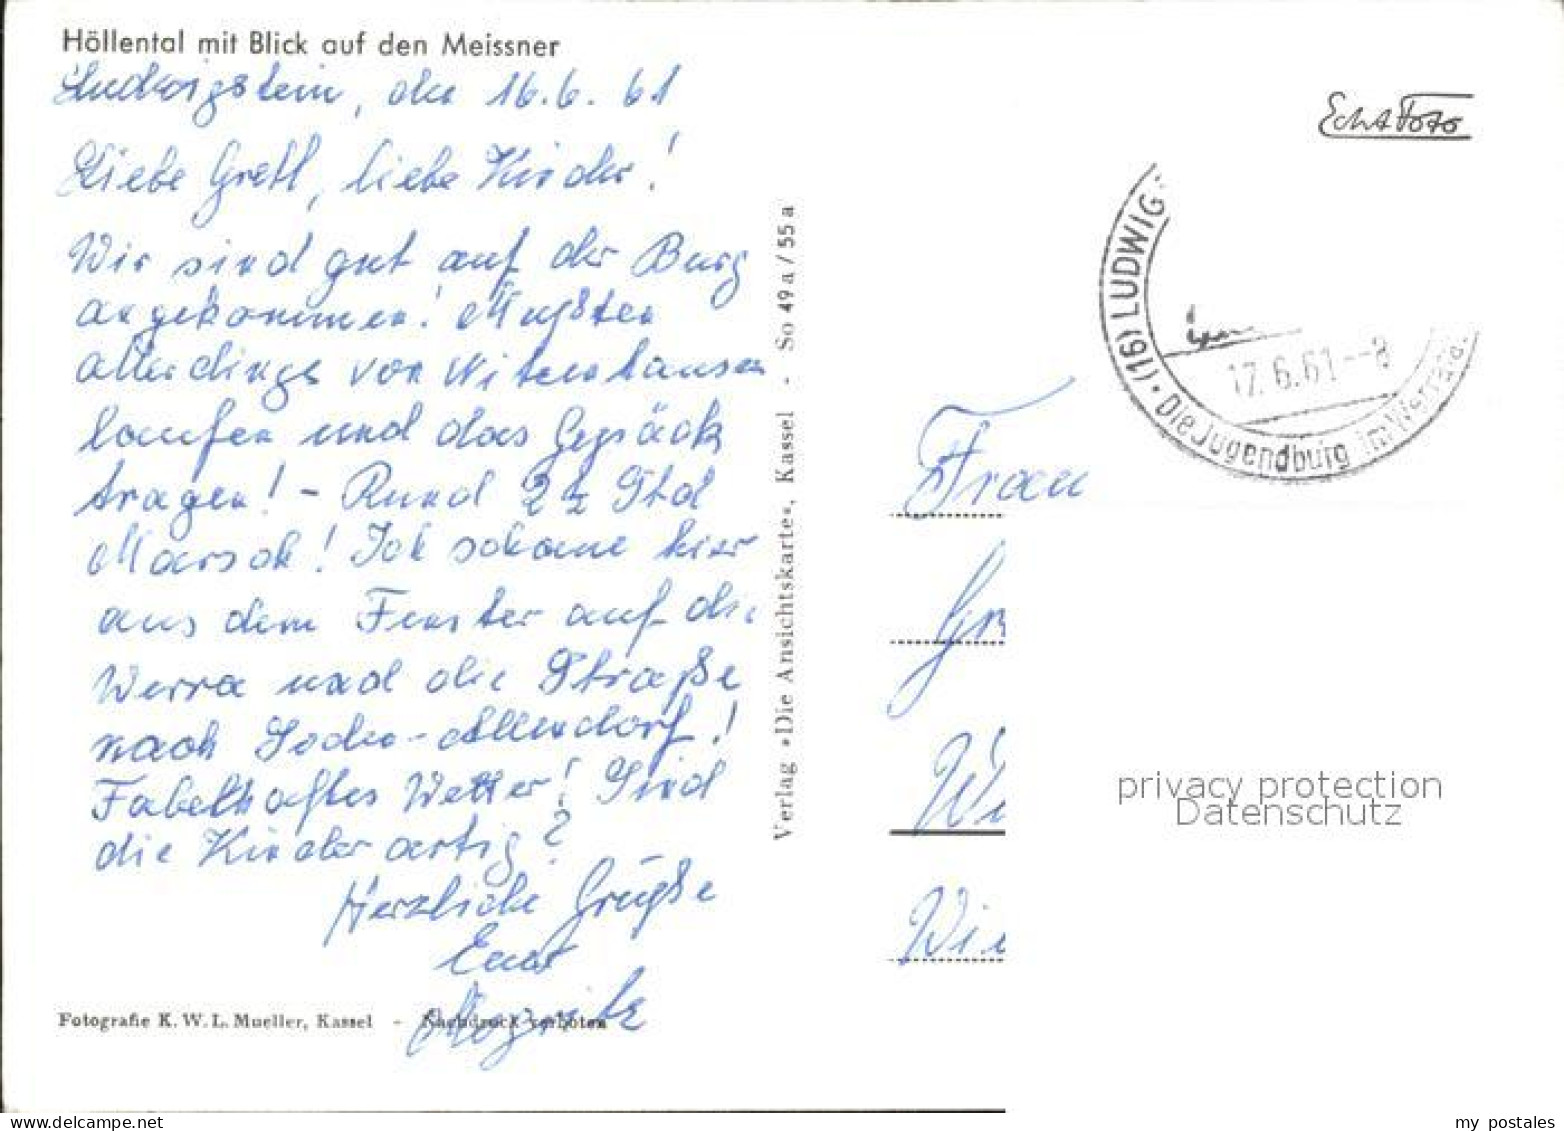 Höllental mit Blick auf den Meissner
Ludwigstein, den 16.6.61
Liebe Gretl, liebe Kinder!
Wir sind gut auf der Burg
angekommen! Mußten
allerdings von Witzenhausen
laufen und das Gepäck
tragen! - Rund 2½ Std
Marsch! Ich schaue hier
aus dem Fenster auf die
Werra und die Straße
nach Soden-Allendorf!
Fabelhaftes Wetter! Sind
die Kinder artig?
Herzliche Grüße
Fotografie K. W. L. Mueller, Kassel - Nachdruck verboten
Verlag »Die Ansichtskarte«, Kassel - So 49 a / 55 a
Echt Foto
(16) LUDWIG
17.6.61--8
Die Jugendburg im Werra
Frau
Gr
Wi
privacy protection
Datenschutz
my postales